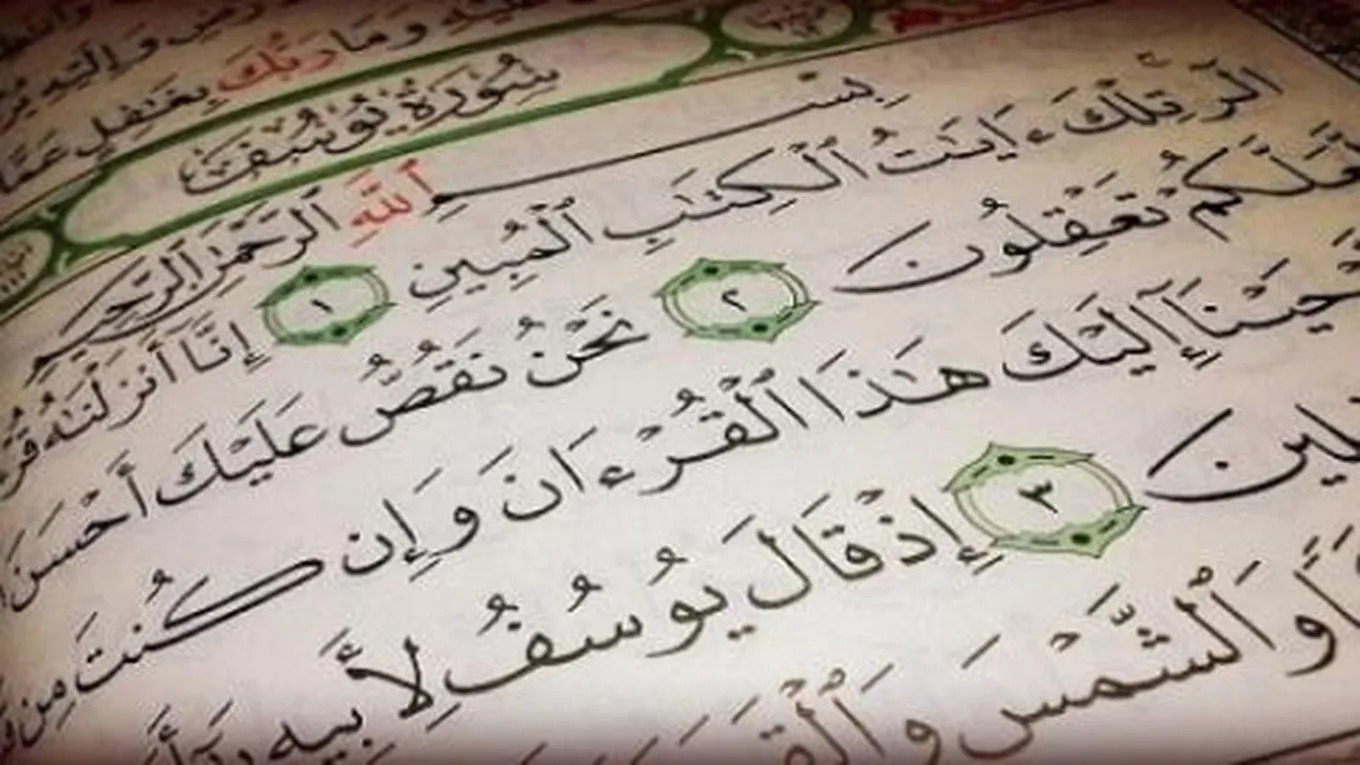 وَإِلَيْهِ
وَمَا رَبُّكَ بِغَٰفِلٍ عَمَّا
سُورَةُ يُوسُفَ
بِسْمِ ٱللَّهِ ٱلرَّحْمَٰنِ ٱلرَّحِيمِ
الٓر تِلْكَ ءَايَٰتُ ٱلْكِتَٰبِ ٱلْمُبِينِ ١ إِنَّآ أَنزَلْنَٰهُ
لَّعَلَّكُمْ تَعْقِلُونَ ٢ نَحْنُ نَقُصُّ عَلَيْكَ أَحْسَنَ
إِلَيْكَ هَٰذَا ٱلْقُرْءَانَ وَإِن كُنتَ مِن
٣ إِذْ قَالَ يُوسُفُ لِأَبِيهِ
وَٱلشَّمْسَ